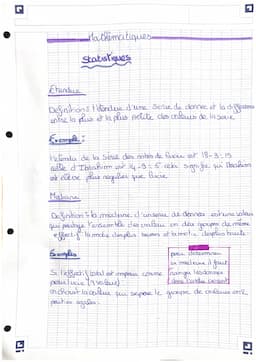 Mathématiques
Statistiques
Étendue
Définition : l'étendue d'une série de donnée et la différence
entre la plus et la plus petite des valeurs de la série
Exemple :
l'étendu de la série des notes de est 18-3=15
celle d'Ibrahim est 14-9=5 cela signifie qu'Ibrahim
est élève plus régulier que
Médiane
Définition : la médiane d'une série de données est une valeur
qui partage l'ensemble des valeurs en deux groupes de même
effectif la moitié des plus basses et la moitié des plus haute.
Exemples
Si l'effectif total est impaire comme
pour (9 valeurs)
pour déterminer
la médiane il faut
ranger les données
dans l'ordre croissant
on choisit la valeur qui sépare le groupe de valeurs en 2
parties égales.